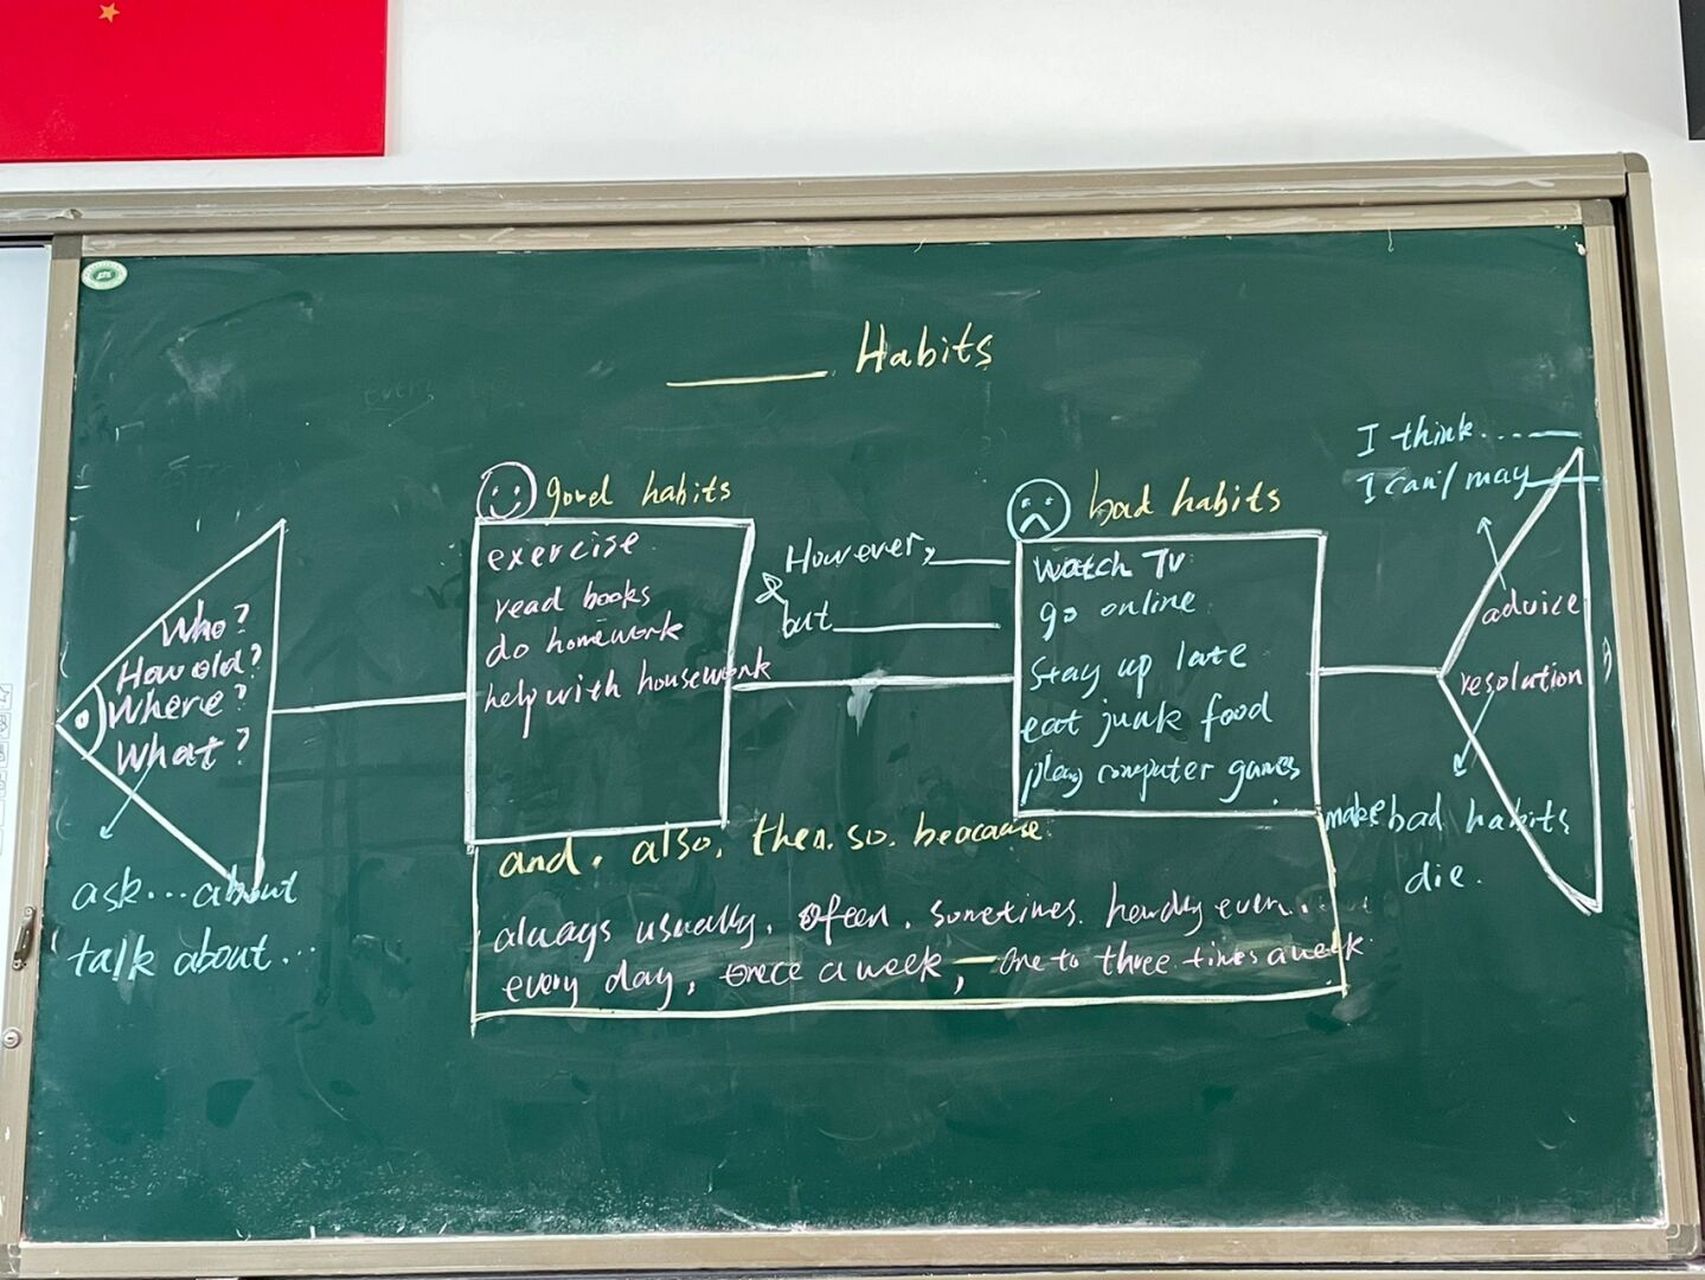 Habits
Who?
How old?
Where?
What?
ask...about
talk about...
good habits
exercise
read books
do homework
help with housework
However,
&
but
bad habits
watch TV
go online
stay up late
eat junk food
play computer games
and, also, then, so, beacause
always usually, often, sometimes, hardly ever...
every day, once a week, — one to three times a week
I think....
I can/may
advice
resolution
make bad habits
die.